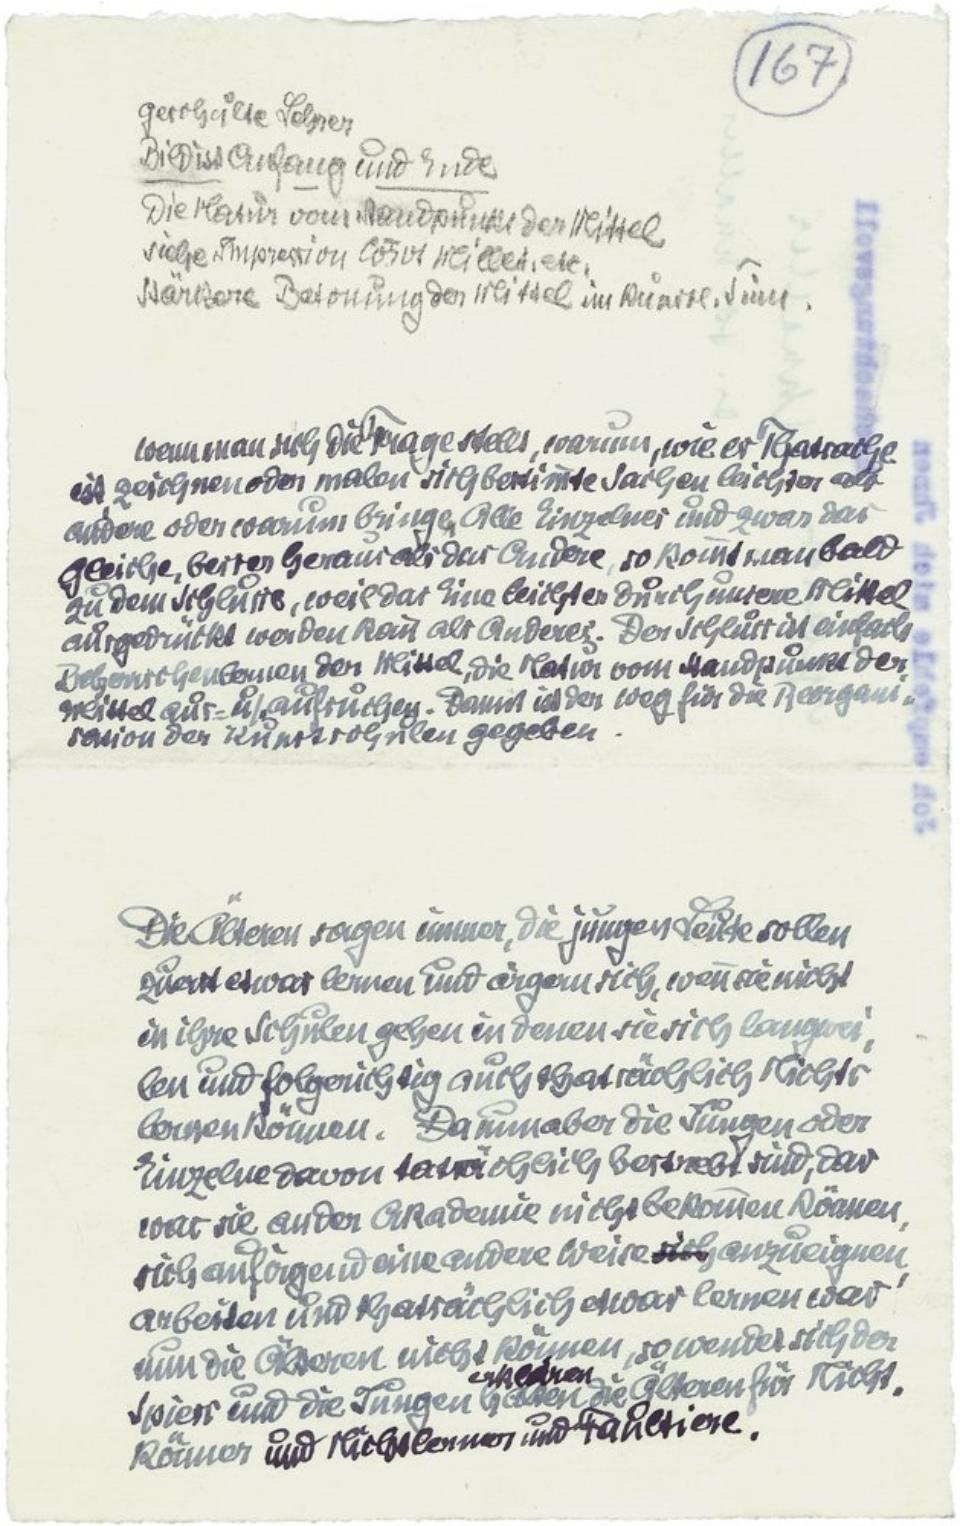 167
geschulte Lehrer
Bild ist Anfang und Ende
Die Natur vom Standpunkt der Mittel
siehe Impression Corot Millet. etc.
stärkere Betonung der Mittel im Künstl. Sinn.
wenn man sich die Frage stellt, warum, wie es Thatsache
ist zeichnen oder malen sich bestim̅te Sachen leichter als
andere oder warum bringe, die Einzelnes und zwar das
gleiche, besser heraus als das Andere, so kom̅t man bald
zu dem Schluss, weil das Eine leichter durch unsere Mittel
ausgedrückt werden kan̅ als Anderes. Der Schluss ist einfach
Beherrschenlernen der Mittel, die Natur vom Standpunkt der
Mittel aus= u. aufsuchen. Damit ist der weg für die Reorgani=
sation der Kunstschulen gegeben.
Die Älteren sagen immer, die jungen Leute sollen
zuerst etwas lernen und ärgern sich, wen̅ sie nicht
in ihre Schulen gehen in denen sie sich langwei,
len und folgerichtig auch thatsächlich Nichts
lernen Können. Da nun aber die Jungen oder
Einzelne davon tatsächlich bestrebt sind, das
was sie an der Akademie nicht bekom̅en Können,
sich auf irgend eine andere Weise sich anzueignen
arbeiten und thatsächlich etwas lernen was
nun die Älteren nicht Können, so wendet sich der
Spiess und die Jungen halten die Älteren für Nicht.
erklären
Könner und Nichtslerner und Faultiere.